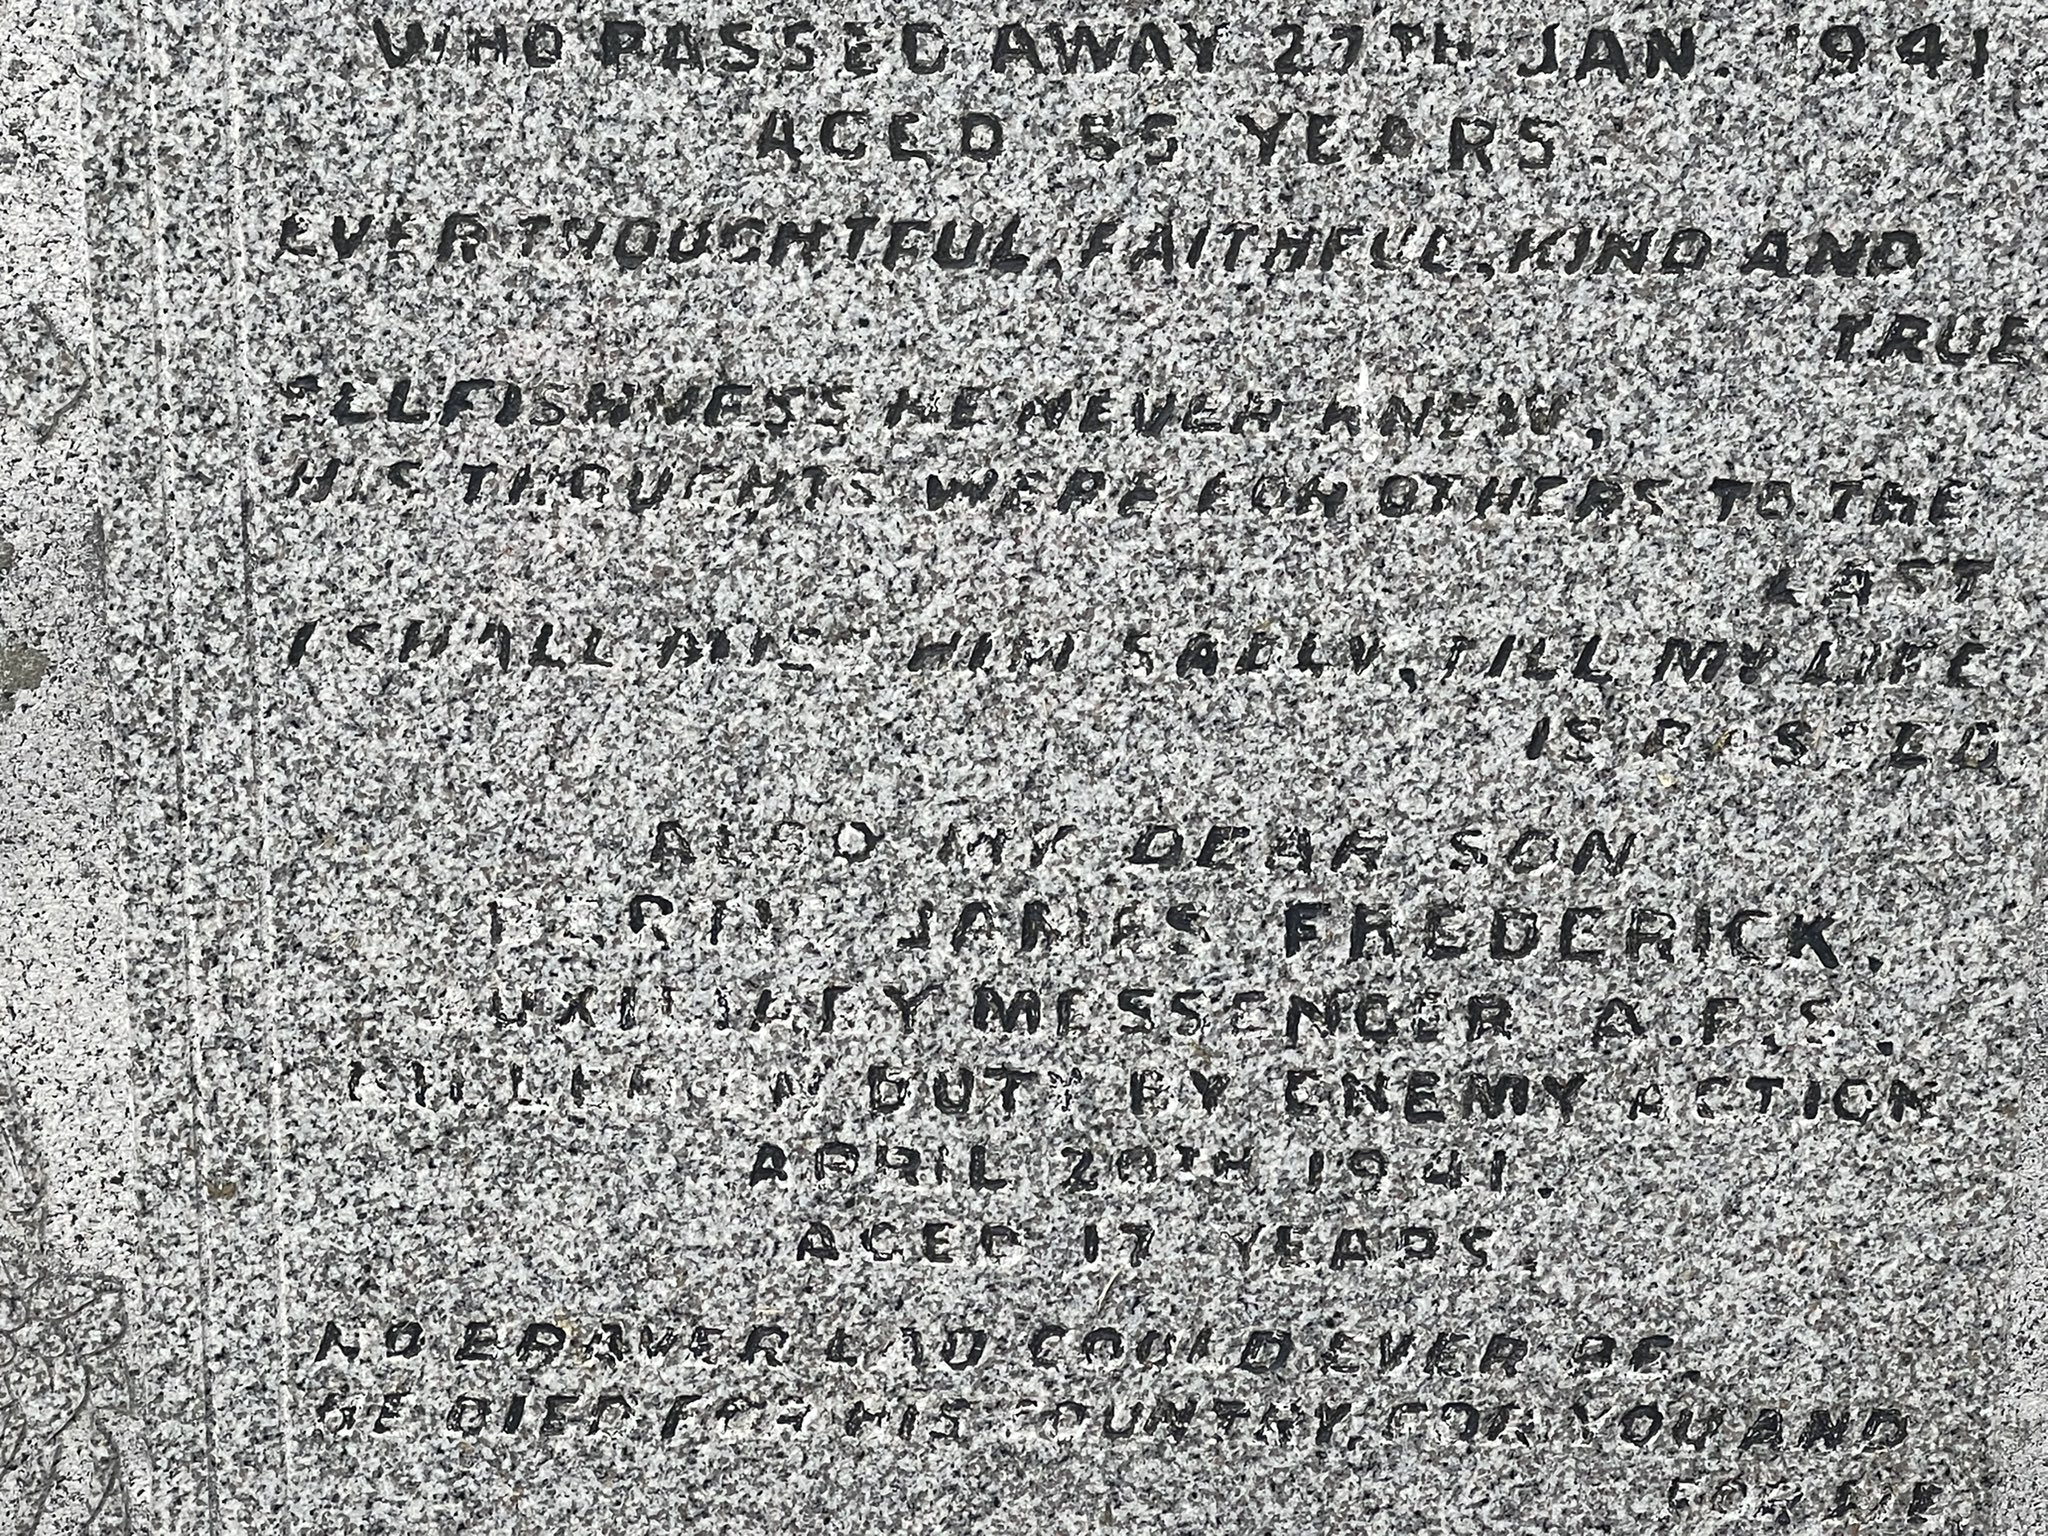 WHO PASSED AWAY 27TH JAN. 1941
AGED 55 YEARS.
EVER THOUGHTFUL, FAITHFUL, KIND AND
TRUE
SELFISHNESS HE NEVER KNEW,
HIS THOUGHTS WERE FOR OTHERS TO THE
LAST
I SHALL MISS HIM SADLY, TILL MY LIFE
IS PASSED
ALSO MY DEAR SON
JAMES FREDERICK.
AUXILIARY MESSENGER A.F.S.
KILLED ON DUTY BY ENEMY ACTION
APRIL 20TH 1941.
AGED 17 YEARS.
NO BRAVER LAD COULD EVER BE,
HE DIED FOR HIS COUNTRY FOR YOU AND
FOR ME